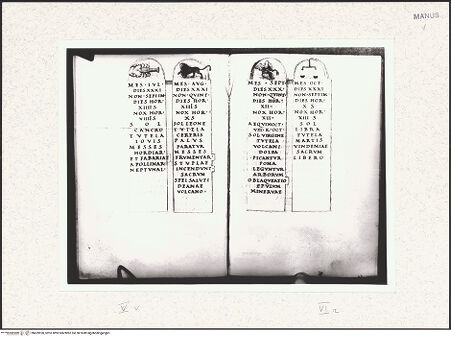 MANUS
MES·IVL·
DIES XXXI
NON·SEPTIM
DIES HOR·
NOX HOR·
SOL
CANCRO
TVTELA
IOVIS
MESSES
HORDIAR
ET FABARIAE
APOLLINAR·
NEPTVNAL·
MES·AVG·
DIES XXXI
NON·QVINT·
DIES HOR·
XIII
NOX HOR·
XI
SOL LEONE
TVTELA
CERERIS
PALVS
PARATVR
MESSES
FRVMENTAR·
STVPLAE
INCENDVNT
SACRVM
SPEI SALVTI
DEANAE
VOLCANO·
MES·SEPT
DIES XXX
NON·QVINT
DIES HOR·
XII·
NOX HOR·
XII·
AEQVINOCT·
SOL VIRGINE
TVTELA
VOLCANI
DOLEA
PICANTVR
POMA
LEGVNTVR
ARBORVM
OBLAQVEATIO
EPVLVM
MINERVAE
MES·OCT·
DIES XXXI
NON·SEPTIM
DIES HOR·
NOX HOR·
SOL
LIBRA
TVTELA
MARTIS
VINDEMIAE
SACRVM
LIBERO
V v
VI r